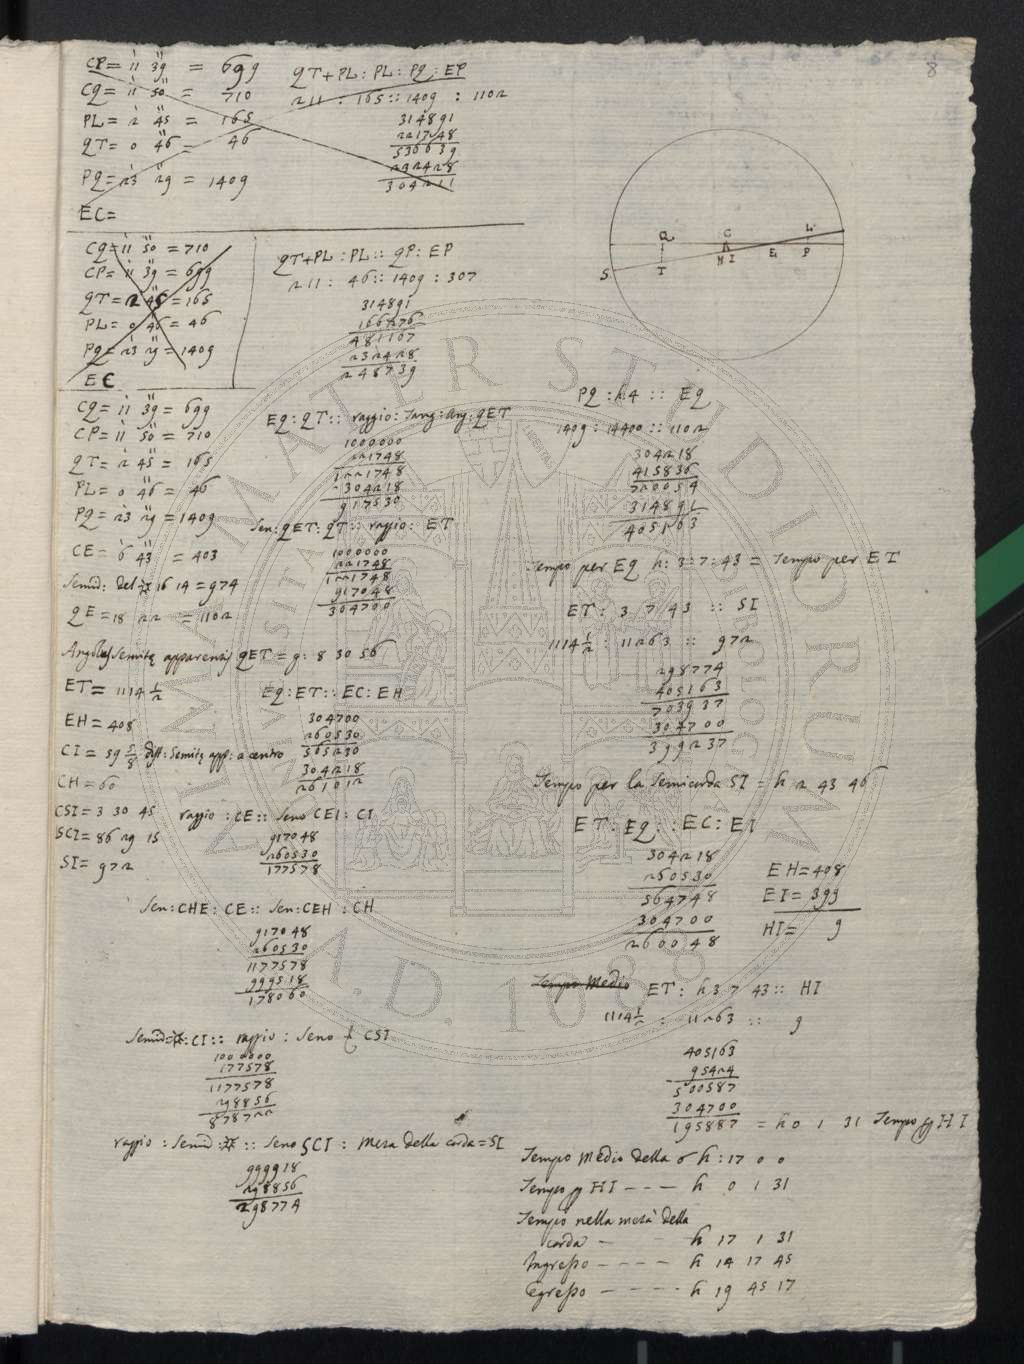 8
CP = 11 39 = 699
CQ = 11 50 = 710
PL = 2 45 = 165
QT = 0 46 = 46
PQ = 23 29 = 1409
EC =
QT+PL : PL : PQ : EP
211 : 165 :: 1409 : 1102
314891
221748
536639
232428
304211
CQ = 11 50 = 710
CP = 11 39 = 699
QT = 2 45 = 165
PL = 0 46 = 46
PQ = 23 29 = 1409
EC
QT+PL : PL :: QP : EP
211 : 46 :: 1409 : 307
314891
166276
481167
232428
248739
Q C L
S T H I E P
CQ = 11 39 = 699
CP = 11 50 = 710
QT = 2 45 = 165
PL = 0 46 = 46
PQ = 23 29 = 1409
CE = 6 43 = 403
Semid: del ☼ 16 14 = 974
QE = 18 22 = 1102
Angolus Semitę apparentis QET = g: 8 30 56
ET = 1114 1/2
EH = 408
CI = 59 5/8 diff: Semitę app: a centro
CH = 60
CSI = 3 30 45
SCI = 86 29 15
SI = 972
EQ : QT :: raggio : Tang: Ang: QET
1000000
221748
1221748
304218
917530
Sen: QET : QT :: raggio : ET
1000000
221748
1221748
917048
304700
EQ : ET :: EC : EH
304700
260530
565230
304218
261012
raggio : CE :: Seno CEI : CI
917048
260530
177578
Sen: CHE : CE :: Sen: CEH : CH
917048
260530
1177578
999518
178060
Semid: ☼ : CI :: raggio : Seno CSI
1000000
177578
1177578
298856
878722
raggio : Semid: ☼ :: Seno SCI : meza della corda = SI
999918
298856
298774
PQ : h 4 :: EQ
1409 : 14400 :: 1102
304218
415836
720054
314891
405163
Tempo per EQ h: 3: 7: 43 = Tempo per ET
ET : 3 7 43 :: SI
1114 1/2 : 11263 :: 972
298774
405163
703937
304700
399237
Tempo per la semicorda SI = h 2 43 46
ET : EQ :: EC : EI
304218
260530
564748
304700
260048
EH = 408
EI = 399
HI = 9
Tempo Medio ET : h 3 7 43 :: HI
1114 1/2 : 11263 :: 9
405163
95424
500587
304700
195887 = h 0 1 31 Tempo p HI
Tempo Medio della ☌ h: 17 0 0
Tempo p HI - - - - h 0 1 31
Tempo nella metà della
corda - - h 17 1 31
Ingresso - - - - h 14 17 45
Egresso - - - - - h 19 45 17
ALMA MATER STUDIORUM
A.D. 1088
UNIVERSITAS BONONIENSIS
LIBERTAS